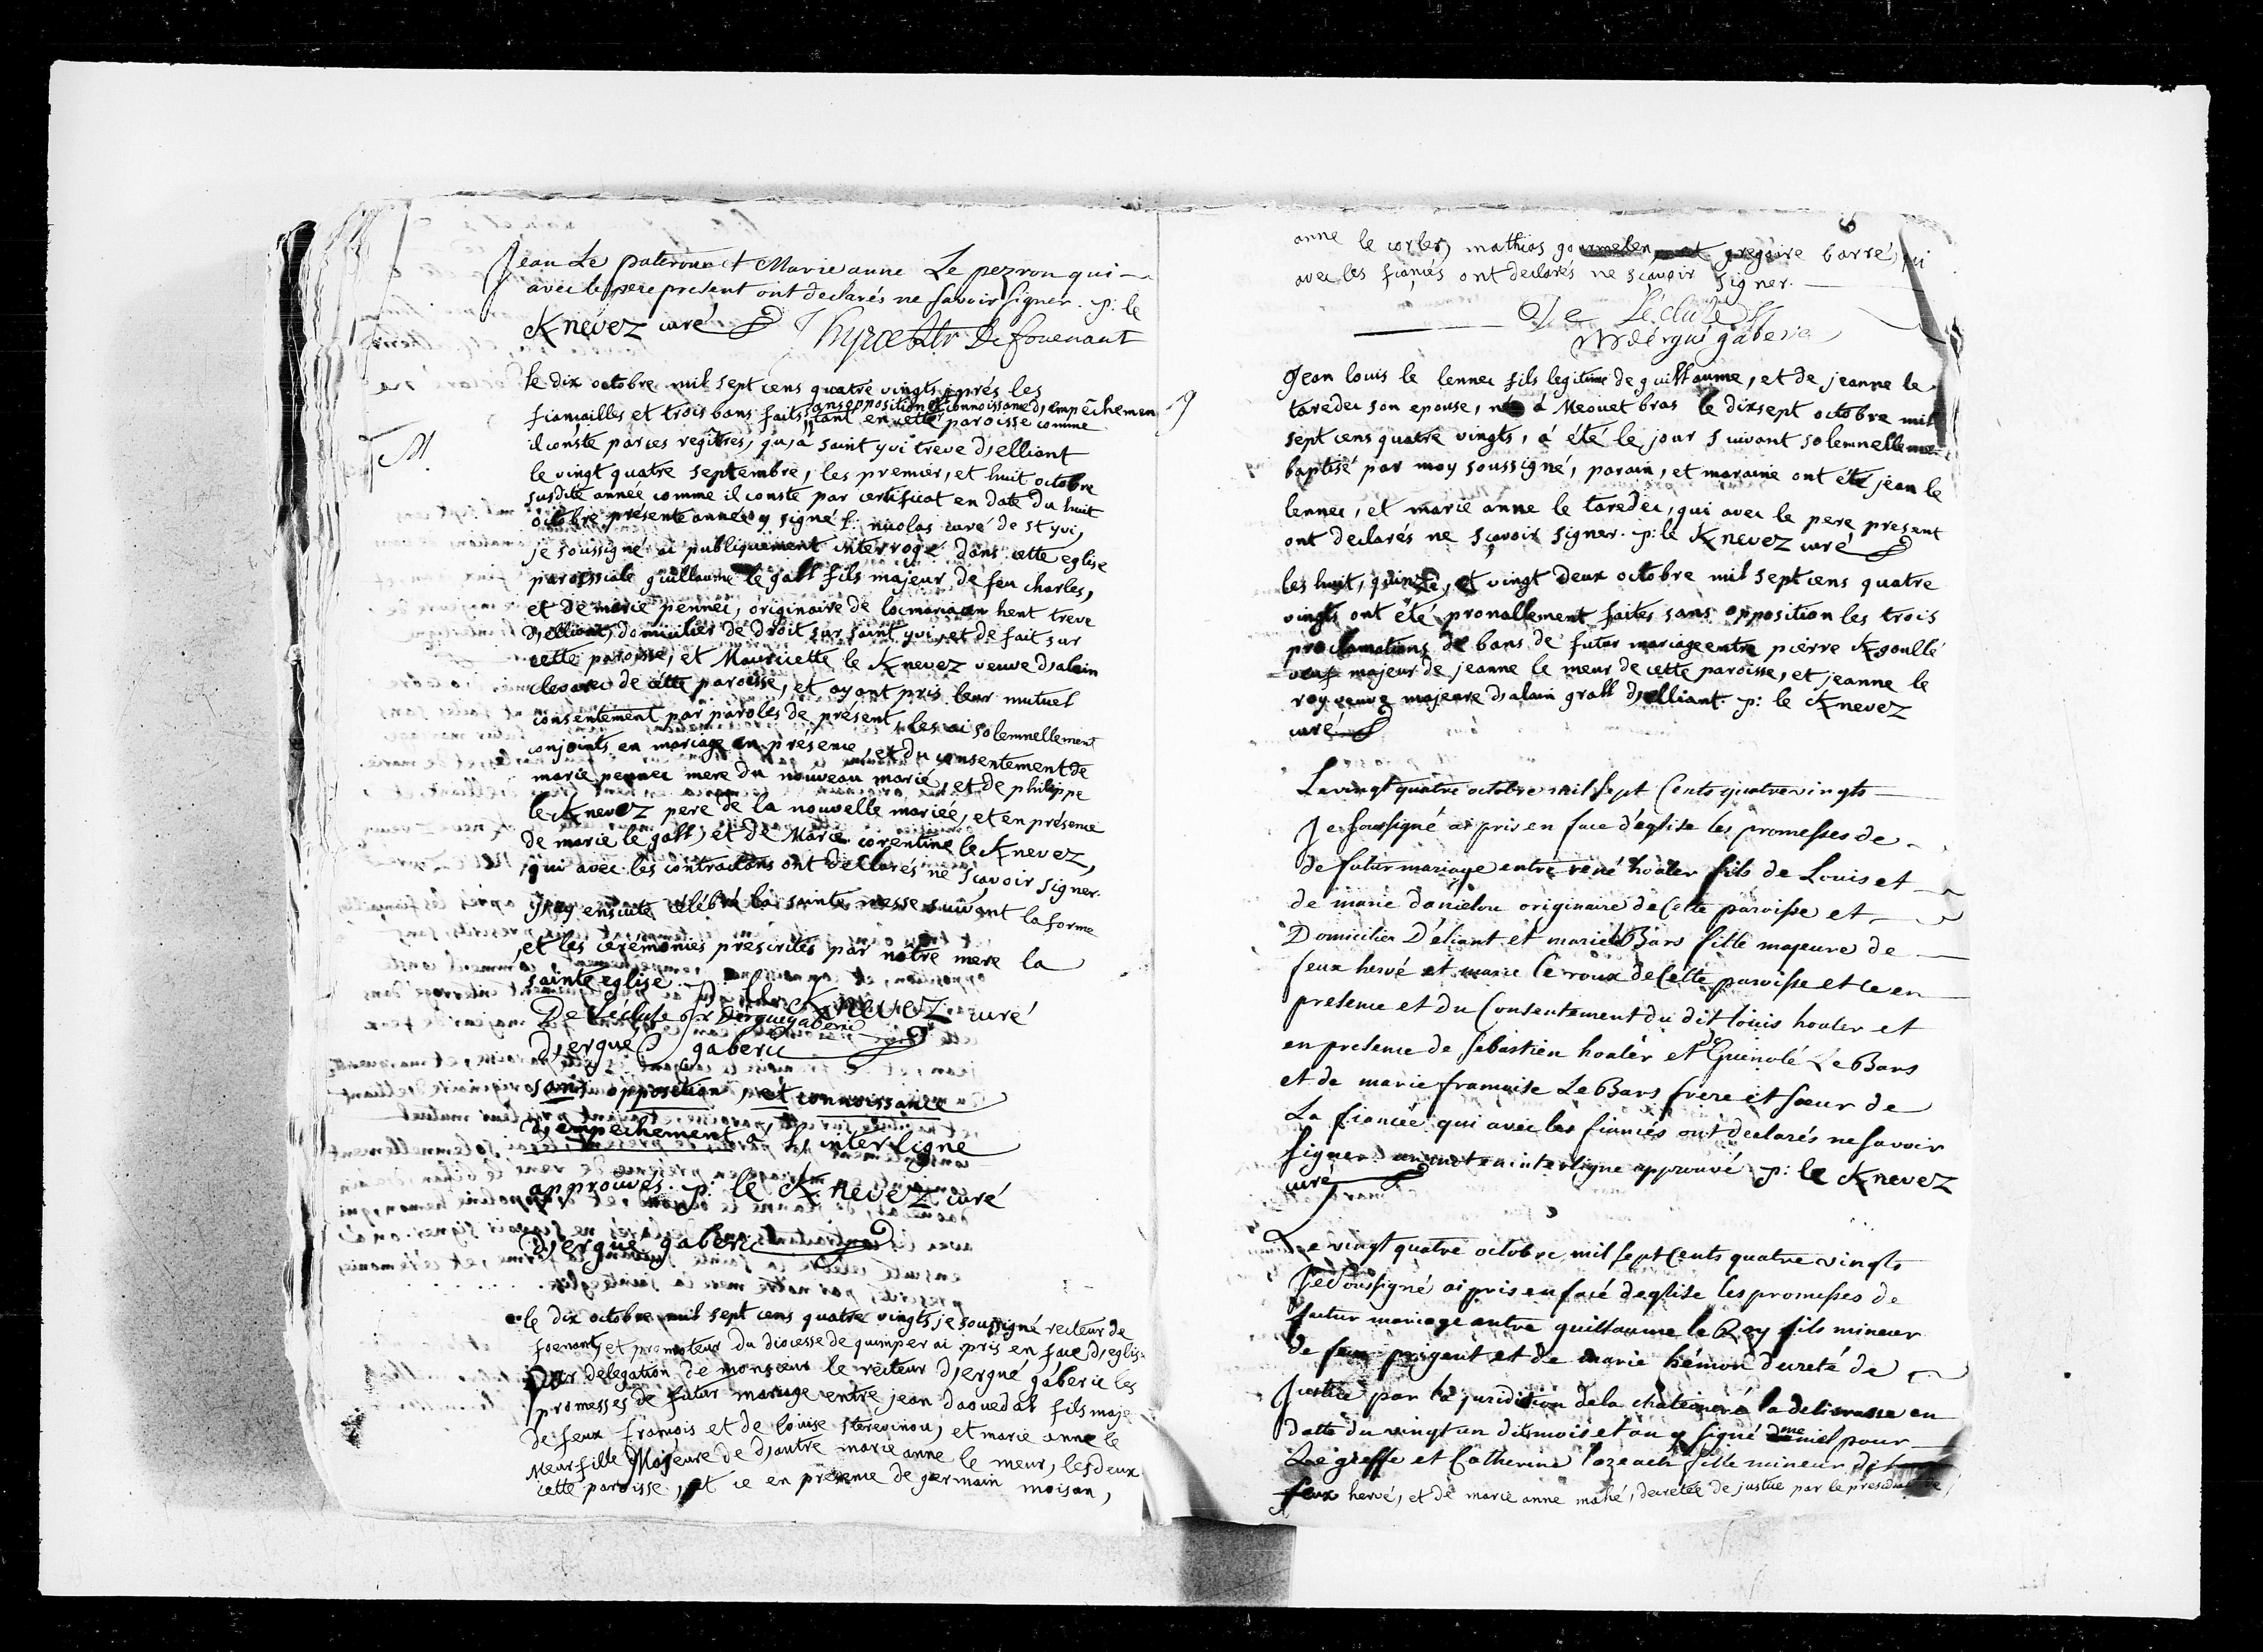 Jean Le paterour et Marie anne Le pezron qui
avec le pere present ont declarés ne savoir signer. p: le
K/nevez curé De fouenant
le dix octobre mil sept cens quatre vingts après les
sans opposition et connoissance d'empêchement
fiançailles et trois bans faits, tant en cette paroisse comme
il conste par ces regîtres, qu'à saint yvi treve d'elliant
M.
le vingt quatre septembre, les premier, et huit octobre
susdite année comme il conste par certificat en date du huit
octobre présente année y signé f. nicolas curé de st yvi,
je soussigné ai publiquement interrogé dans cette eglise
paroissiale guillaume le gall fils majeur de feu charles,
et de marie pennec, originaire de locmaria an hent treve
d'elliant, domicilier de droit sur saint yvi, et de fait sur
cette paroisse, et Mauricette le K/nevez veuve d'alain
de cette paroisse, et ayant pris leur mutuel
consentement par paroles de présent, les ai solemnellement
conjoints en mariage en présence, et du consentement de
marie pennec mere du nouveau marié, et de philippe
le K/nevez pere de la nouvelle mariée, et en présence
de marie le gall, et de Marie corentine le K/nevez,
qui avec les contractans ont declarés ne sçavoir signer.
j'ay ensuite célébré la sainte messe suivant la forme
et les ceremonies prescrites par notre mere la
sainte eglise. p. le K/nevez curé
De Lécluse r d'ergué gaberic
d'ergué gaberic
sans opposition, et connoissance
d'empêchement à l'interligne
approuvés. p. le K/nevez curé
d'ergué gaberic
le dix octobre mil sept cens quatre vingts je soussigné recteur de
foenant, et promoteur du diocesse de quimper ai pris en face d'eglise
par délégation de monsieur le recteur d'ergué gáberic les
promesses de futur mariage entre jean daouedal fils maje
de feux françois et de louise sterevinou, et marie anne le
Meur fille Majeure de d'autre marie anne le meur, les deux
cette paroisse, et ce en présence de germain moisan,
anne le corler, mathias gourmelen et gregoire barré, qui
avec les fiancés ont declarés ne sçavoir signer.
De Lécluse
r d'ergué gaberic
Jean louis le lennec fils legitime de guillaume, et de jeanne le
taredec son epouse, né à Meouet bras le dixsept octobre mil
sept cens quatre vingts, à été le jour suivant solemnellement
baptisé par moy soussigné, parain, et maraine ont été jean le
lennec, et marie anne le taredec, qui avec le pere present
ont declarés ne sçavoir signer. p: le K/nevez curé
les huit, quinze, et vingt deux octobre mil sept cens quatre
vingts ont été pronallement faites sans opposition les trois
proclamations de bans de futur mariage entre pierre K/goullé
veuf majeur de jeanne le meur de cette paroisse, et jeanne le
roy veuve majeure d'alain grall d'elliant. p: le K/nevez
curé
Le vingt quatre octobre mil sept Cents quatre vingts
Je soussigné ai pris en face d'eglise les promesses de
de futur mariage entre rené hoaler fils de Louis et
de marie danielou originaire de Cette paroisse et
Domicilier D'éliant et marie le Bars fille majeure de
feux hervé et marie le roux de Cette paroisse et ce en
presence et du Consentement du dit louis hoaler et
en presence de sebastien hoaler et de Guenolé Le Bars
et de marie françoise Le Bars frere et sœur de
La fiancée qui avec les fiancés ont declarés ne savoir
signer un mot en interligne approuvé p: le K/nevez
curé
Le vingt quatre octobre mil sept Cents quatre vingts
Je soussigné ai pris en face deglise les promesses de
futur mariage entre guillaume le Roy fils mineur
de feu prigent et de marie hémon decreté de
Justice par la juridiction de la en
datte du vingt un dit mois et an y signé pour
Le greffe et Catherine lozeach fille mineur de
feux hervé, et de marie anne mahé, decretée de justice par le presidial de